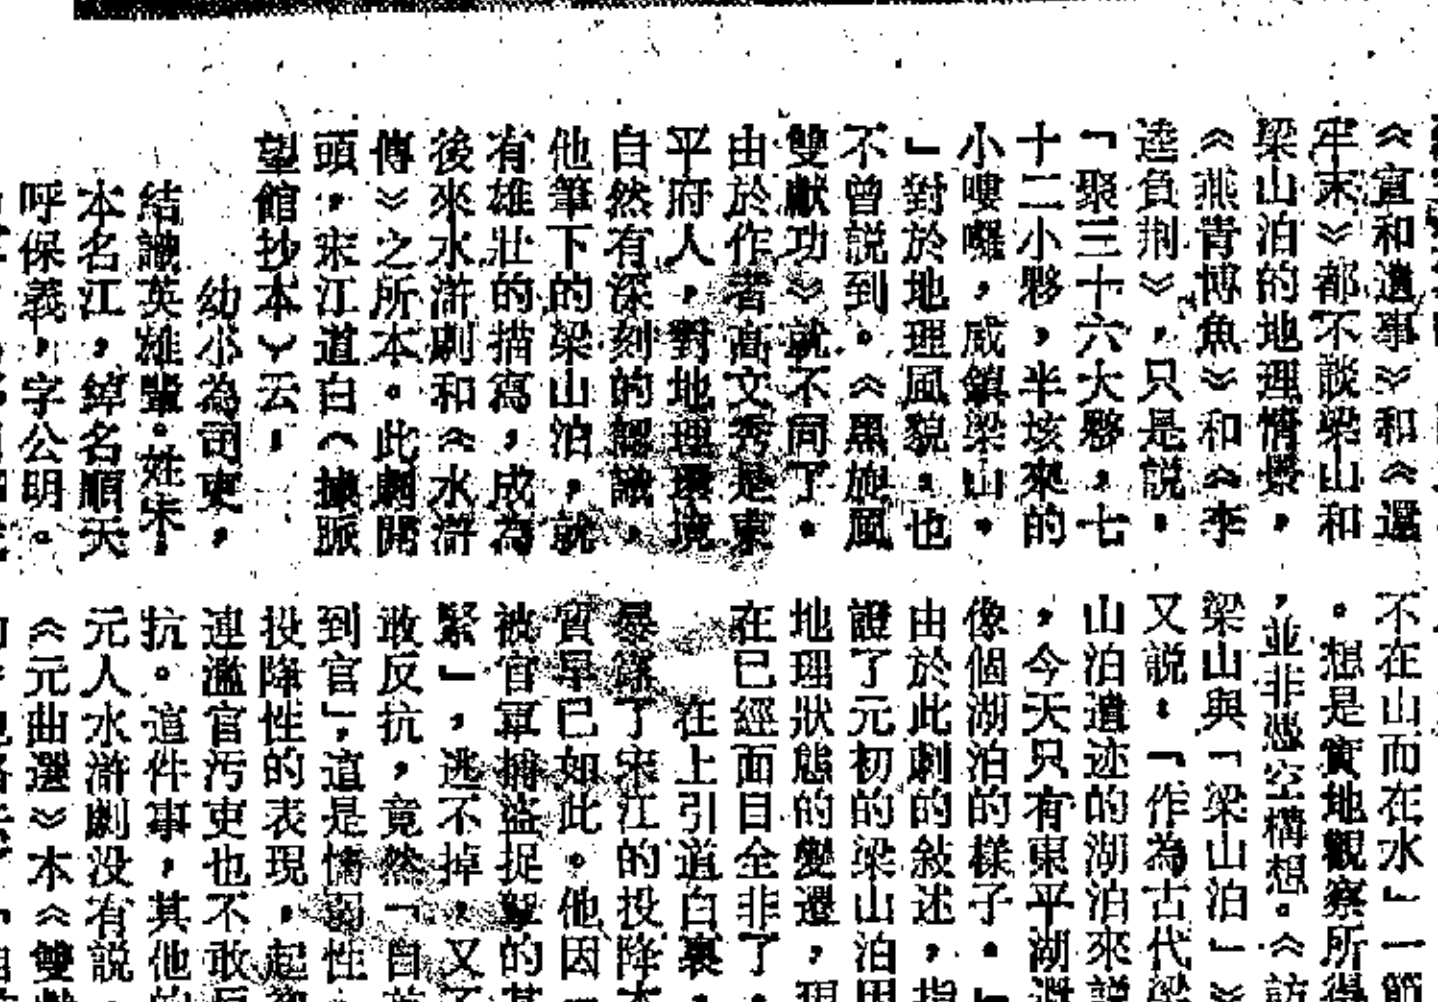 《宣和遺事》和《還
牢末》都不談梁山和
梁山泊的地理情景，
《燕青博魚》和《李
逵負荆》，只是説：
「聚三十六大夥，七
十二小夥，半垓來的
小嘍囉，威鎮梁山。
」對於地理風貌，也
不曾説到。《黑旋風
雙獻功》就不同了。
由於作者高文秀是東
平府人，對地理環境
自然有深刻的認識，
他筆下的梁山泊，就
有雄壯的描寫，成為
後來水滸劇和《水滸
傳》之所本。此劇開
頭，宋江道白（據脈
望館抄本）云：
幼小為司吏，
結識英雄輩。姓宋
本名江，綽名順天
呼保義，字公明。
不在山而在水」一節
。想是實地觀察所得
，並非憑空構想。《訪
梁山與「梁山泊」》
又説：「作為古代梁
山泊遺迹的湖泊來説
，今天只有東平湖還
像個湖泊的樣子。」
由於此劇的敍述，指
證了元初的梁山泊因
地理狀態的變遷，現
在已經面目全非了。
在上引道白裏，
暴露了宋江的投降本
質早已如此。他因
被官軍捕盜捉拿的甚
緊」，逃不掉，又不
敢反抗，竟然「自首
到官」，這是懦弱性
投降性的表現，起初
連濫官污吏也不敢反
抗。這件事，其他的
元人水滸劇没有説
《元曲選》本《雙獻